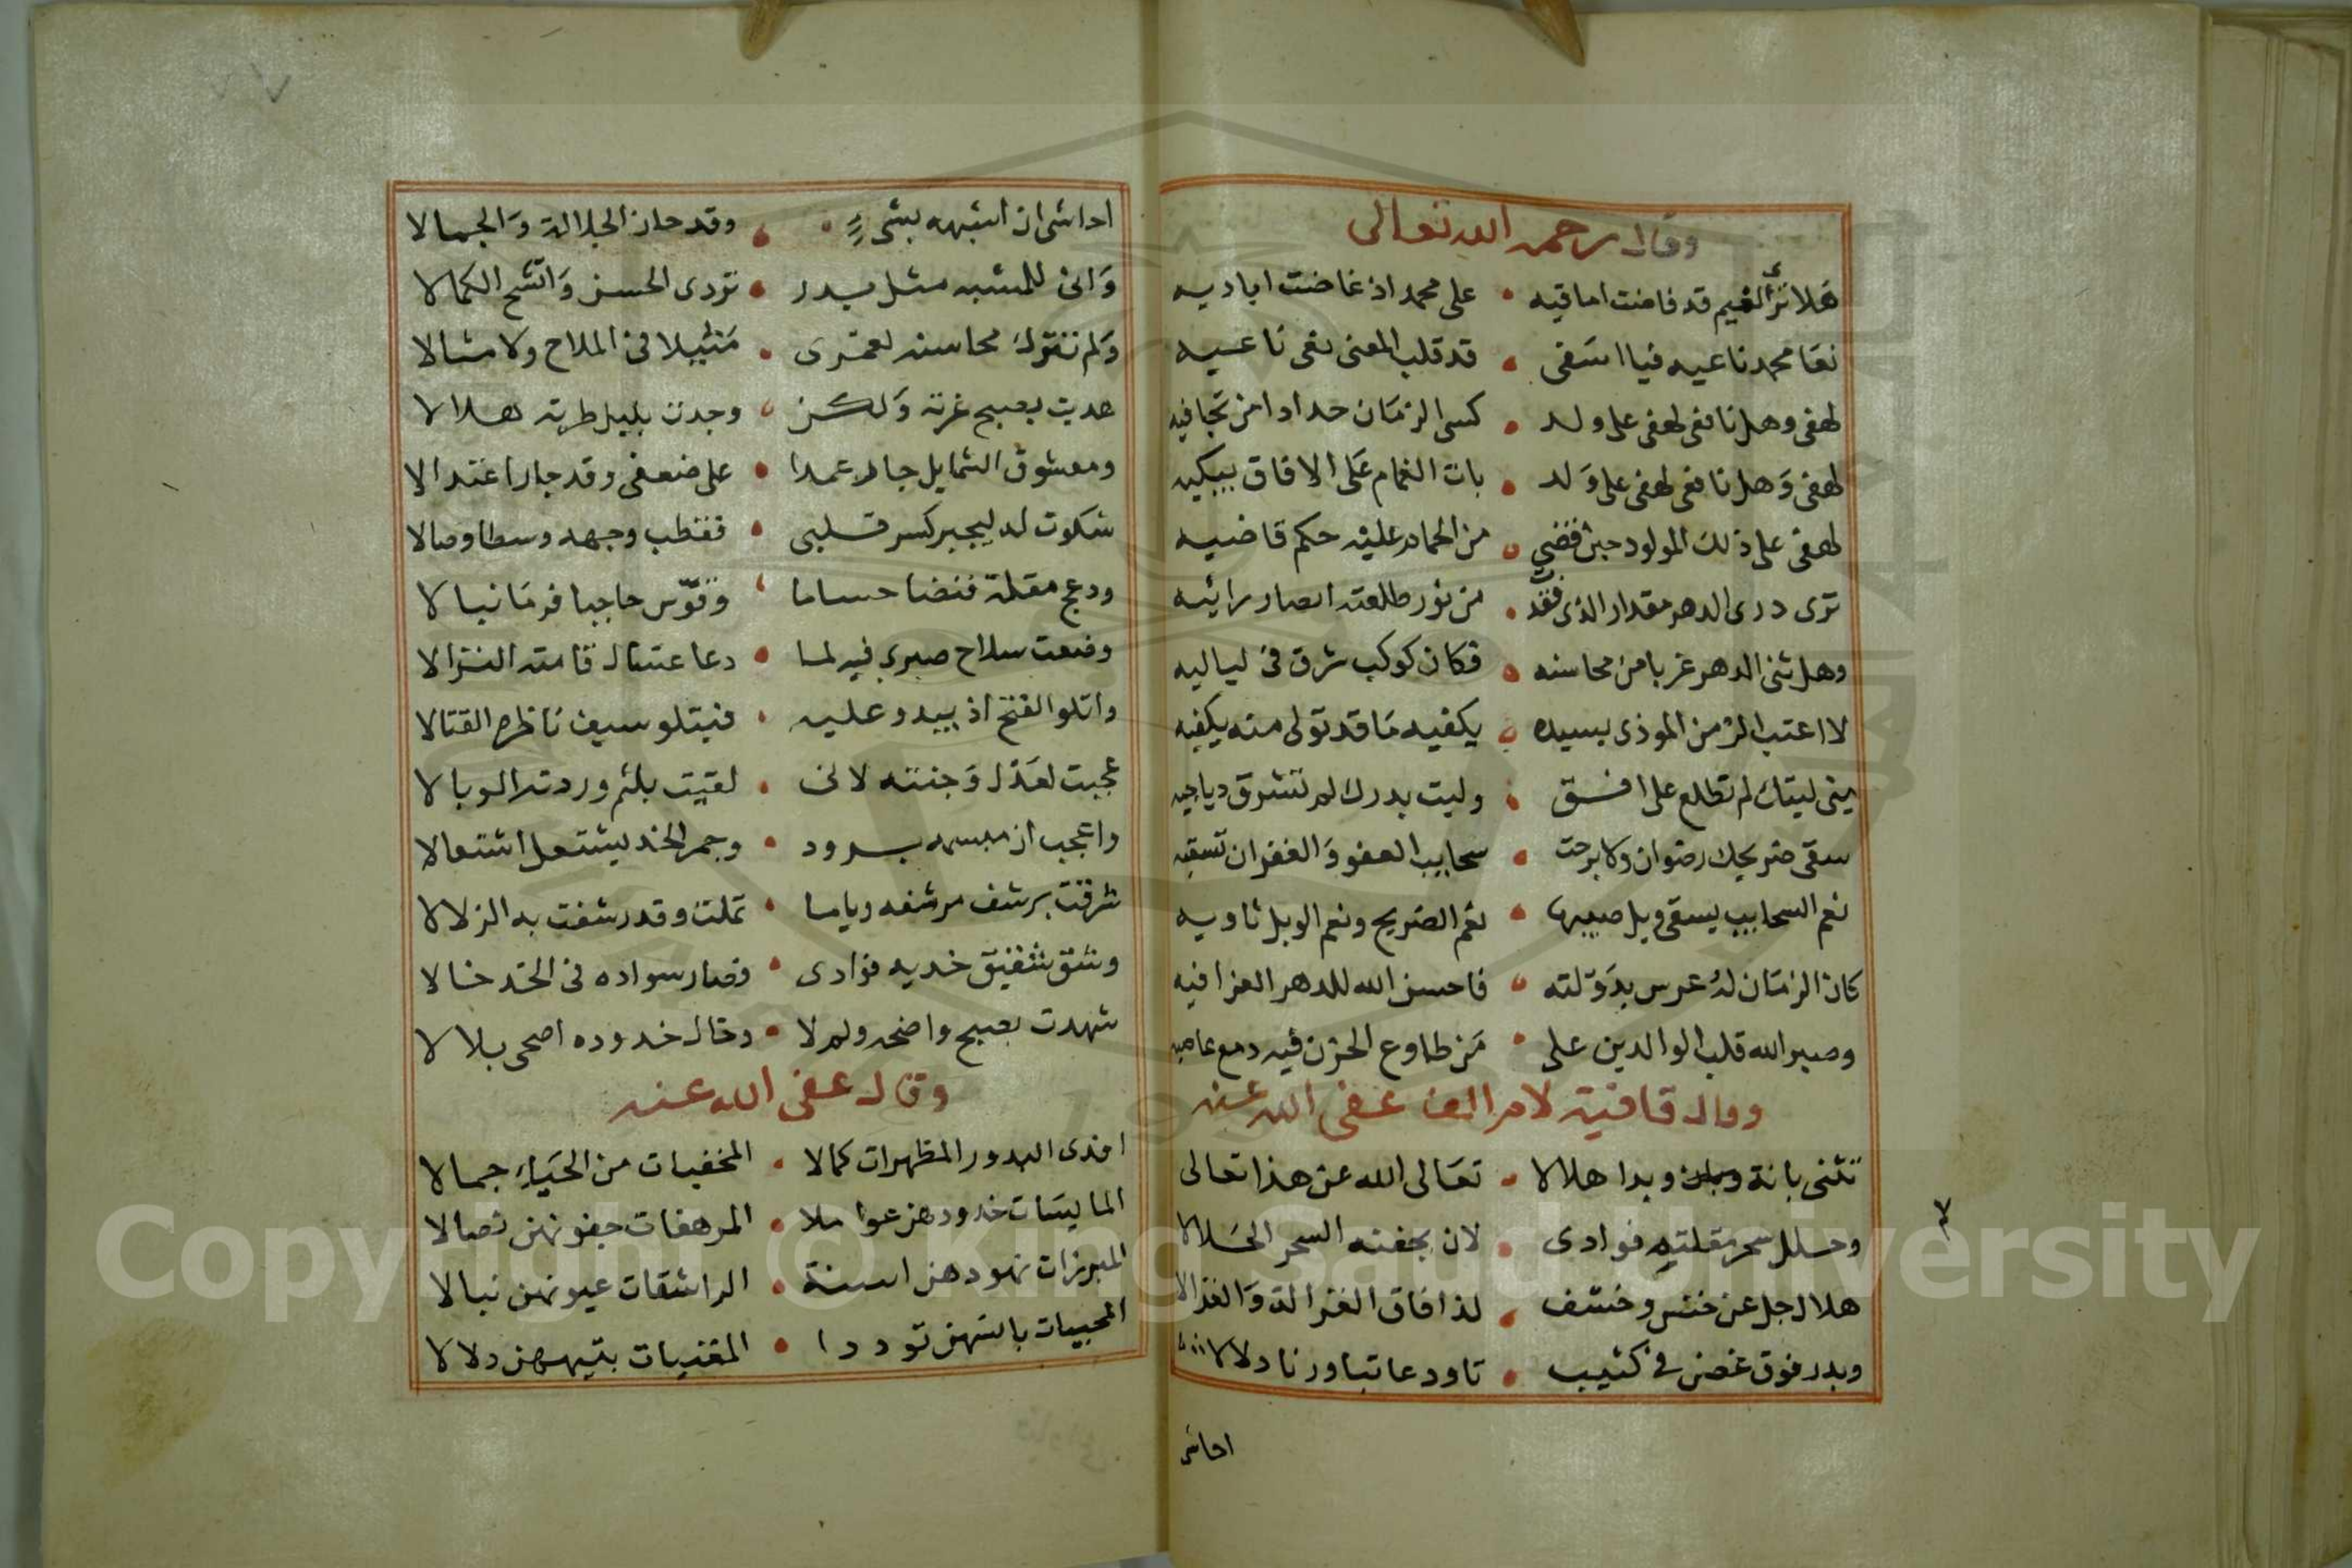 وقال رحمه الله تعالى
هلا ترى الغيم قد فاضت اماقيه • على محمد اذ غاضت اياديه
نعا محمد ناعيه فيا اسفى • قد قلب المعنى نعى ناعيه
لهفى وهل نافعى لهفى على ولد • كسى الزمان حدادا من تجافيه
لهفى وهل نافعى لهفى على ولد • بات الغمام على الافاق يبكيه
لهفى على ذلك المولود حين قضى • من الحمام عليه حكم قاضيه
ترى درى الدهر مقدار الذى فقدت • من نور طلعته ابصار رائيه
وهل ثنى الدهر غربا من محاسنه • فكان كوكب شرق فى لياليه
لا اعتب الزمن الموذى بسيده • يكفيه ما قد تولى منه يكفيه
بنى ليتك لم تطلع على افق • وليت بدرك لم تشرق دياجيه
سقى ضريحك رضوان ولا برحت • سحايب العفو والغفران تسقيه
نعم السحايب يسقى وبل صيبها • نعم الضريح ونعم الوبل ثاويه
كان الزمان له عرس بدولته • فاحسن الله للدهر العزا فيه
وصبر الله قلب الوالدين على • من طاوع الحزن فيه دمع عاصيه
وقال قافية لام الف عفى الله عنه
تثنى بانة وبدا هلالا • تعالى الله عن هذا تعالى
وحلل سحر مقلتيه فوادى • لان بجفنه السحر الحلالا
هلال جل عن خنس وخسف • لذا فاق الغزالة والغزالا
وبدر فوق غصن فى كثيب • تاود عاتبا ورنا دلالا
احاشى
احاشى ان اشبهه بشىء • وقد حاز الجلالة والجمالا
وانى للمشبه مثل بدر • تردى الحسن واتشح الكمالا
ولم تترك محاسنه لعمرى • مثيلا فى الملاح ولا مثالا
هديت بصبح غرته ولكن • وجدت بليل طرته هلالا
ومعشوق الشمايل جار عمدا • على ضعفى وقد جار اعتدالا
شكوت له ليجبر كسر قلبى • فقطب وجهه وسطا وصالا
ودعج مقلة فنضا حساما • وقوس حاجبا فرما نبالا
وضعت سلاح صبرى فيه لما • دعا عسال قامته النزالا
واتلو الفتح اذ يبدو عليه • فيتلو سيف ناظره القتالا
عجبت لعذل وجنته لانى • لقيت بلثم وردته الوبالا
واعجب ان مبسمه برود • وجمر الخد يشتعل اشتعالا
شرقت برشف مرشفه وياما • ثملت وقد رشفت به الزلالا
وشق شقيق خديه فوادى • فصار سواده فى الخد خالا
شهدت بصبح واضحه ولم لا • وخال خدوده اضحى بلالا
وقال عفى الله عنه
افدى البدور المظهرات كمالا • المخفيات من الحياء جمالا
المايسات خدودهن عواملا • المرهفات جفونهن نصالا
المبرزات نهودهن اسنة • الراشقات عيونهن نبالا
المحييات بانسهن توددا • المفنيات بتيههن دلالا
Copyright © King Saud University